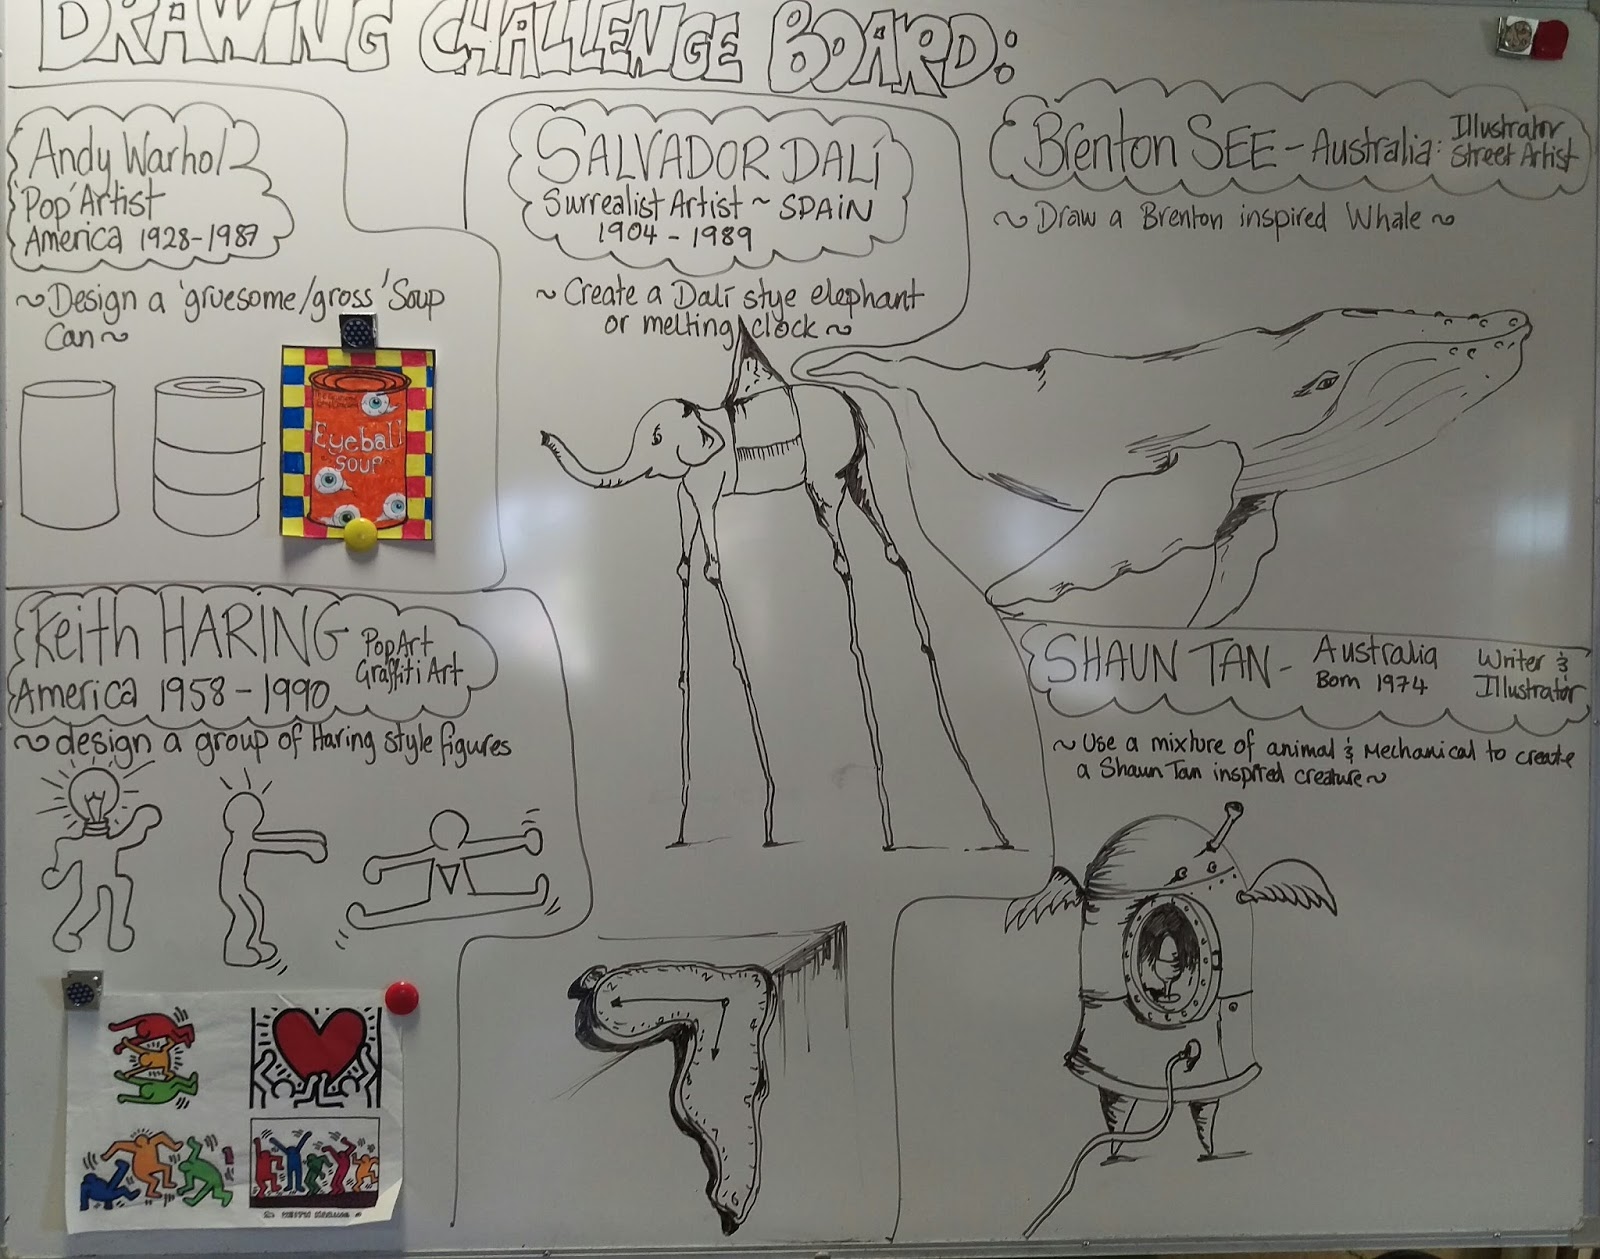 DRAWING CHALLENGE BOARD:
Andy Warhol
'Pop' Artist
America 1928-1987
~ Design a 'gruesome/gross' Soup
Can ~
Eyeball
SOUP
SALVADOR DALÍ
Surrealist Artist ~ SPAIN
1904 - 1989
~ Create a Dalí stye elephant
or melting clock ~
Brenton SEE - Australia: Illustrator
Street Artist
~ Draw a Brenton inspired Whale ~
Keith HARING Pop Art
Graffiti Art
America 1958 - 1990
~ design a group of Haring style figures
SHAUN TAN - Australia Writer &
Born 1974 Illustrator
~ Use a mixture of animal & Mechanical to create
a Shaun Tan inspired creature ~